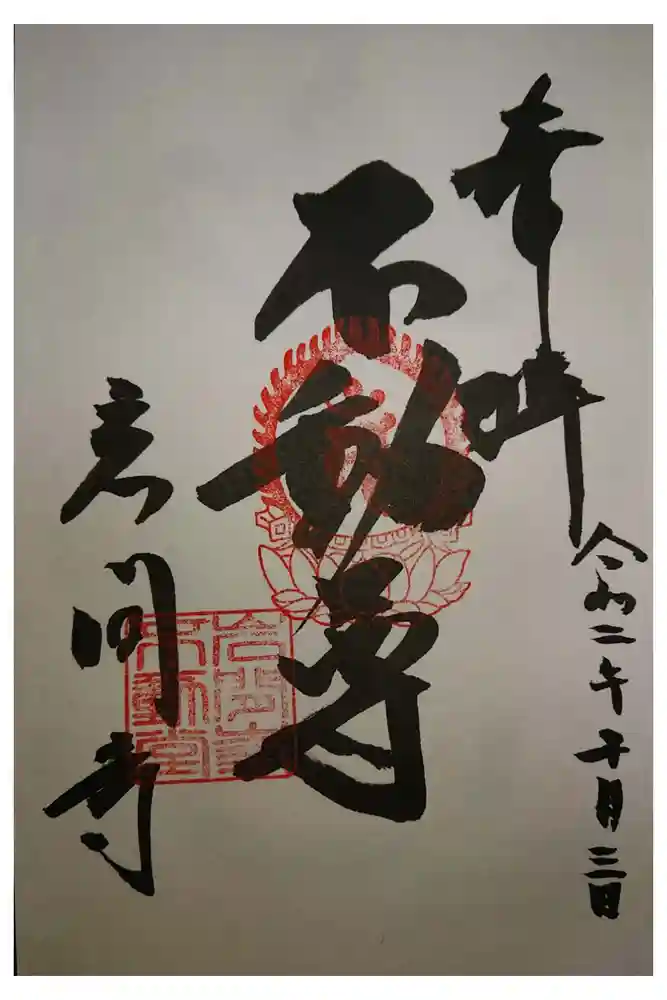 奉拝
令和二年十月三日
不動尊
寺
不動堂